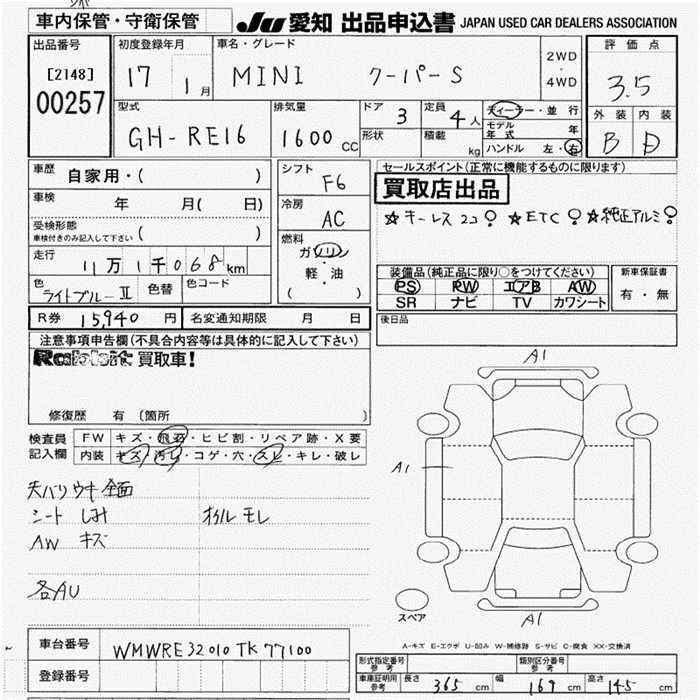 車内保管・守衛保管
JU 愛知 出品申込書 JAPAN USED CAR DEALERS ASSOCIATION
出品番号
[2148]
00257
初度登録年月
17 1月
車名・グレード
MINI クーパーS
2WD
・
4WD
評価点
3.5
型式
GH-RE16
排気量
1600 CC
ドア 3
形状
定員 4人
積載 kg
ディーラー・並行
モデル年式 年
ハンドル 左・右
外装 内装
B D
車歴 自家用・( )
車検 年 月( 日)
受検形態
車検付きのみ記入して下さい ( )
走行 11万1千068km
色 ライトブルーII
色替
色コード
シフト
F6
冷房
AC
燃料
ガソリン
・
軽・油
( )
セールスポイント(正常に機能するものに限ります)
買取店出品
☆キーレス2コ ☆ETC ☆純正アルミ
装備品(純正品に限り○をつけてください)
PS PW エアB AW
SR ナビ TV カワシート
新車保証書
有・無
R券 15,940 円
名変通知期限 月 日
後日品
注意事項申告欄(不具合内容等は具体的に記入して下さい)
Rabbit 買取車!
修復歴 有 〔箇所 〕
検査員
記入欄
FW キズ・飛石・ヒビ割・リペア跡・X要
内装 キズ・汚レ・コゲ・穴・スレ・キレ・破レ
天バリ ウキ 全面
シート しみ オイル モレ
AW キズ
各AU
A1
A1
A1
スペア
A-キズ E-エクボ U-凹み W-補修跡 S-サビ C-腐食 XX-交換済
車台番号 WMWRE32010TK77100
登録番号
形式指定番号
参考
類別区分番号
参考
車庫証明用
参考
長さ 365 cm 幅 169 cm 高さ 145 cm